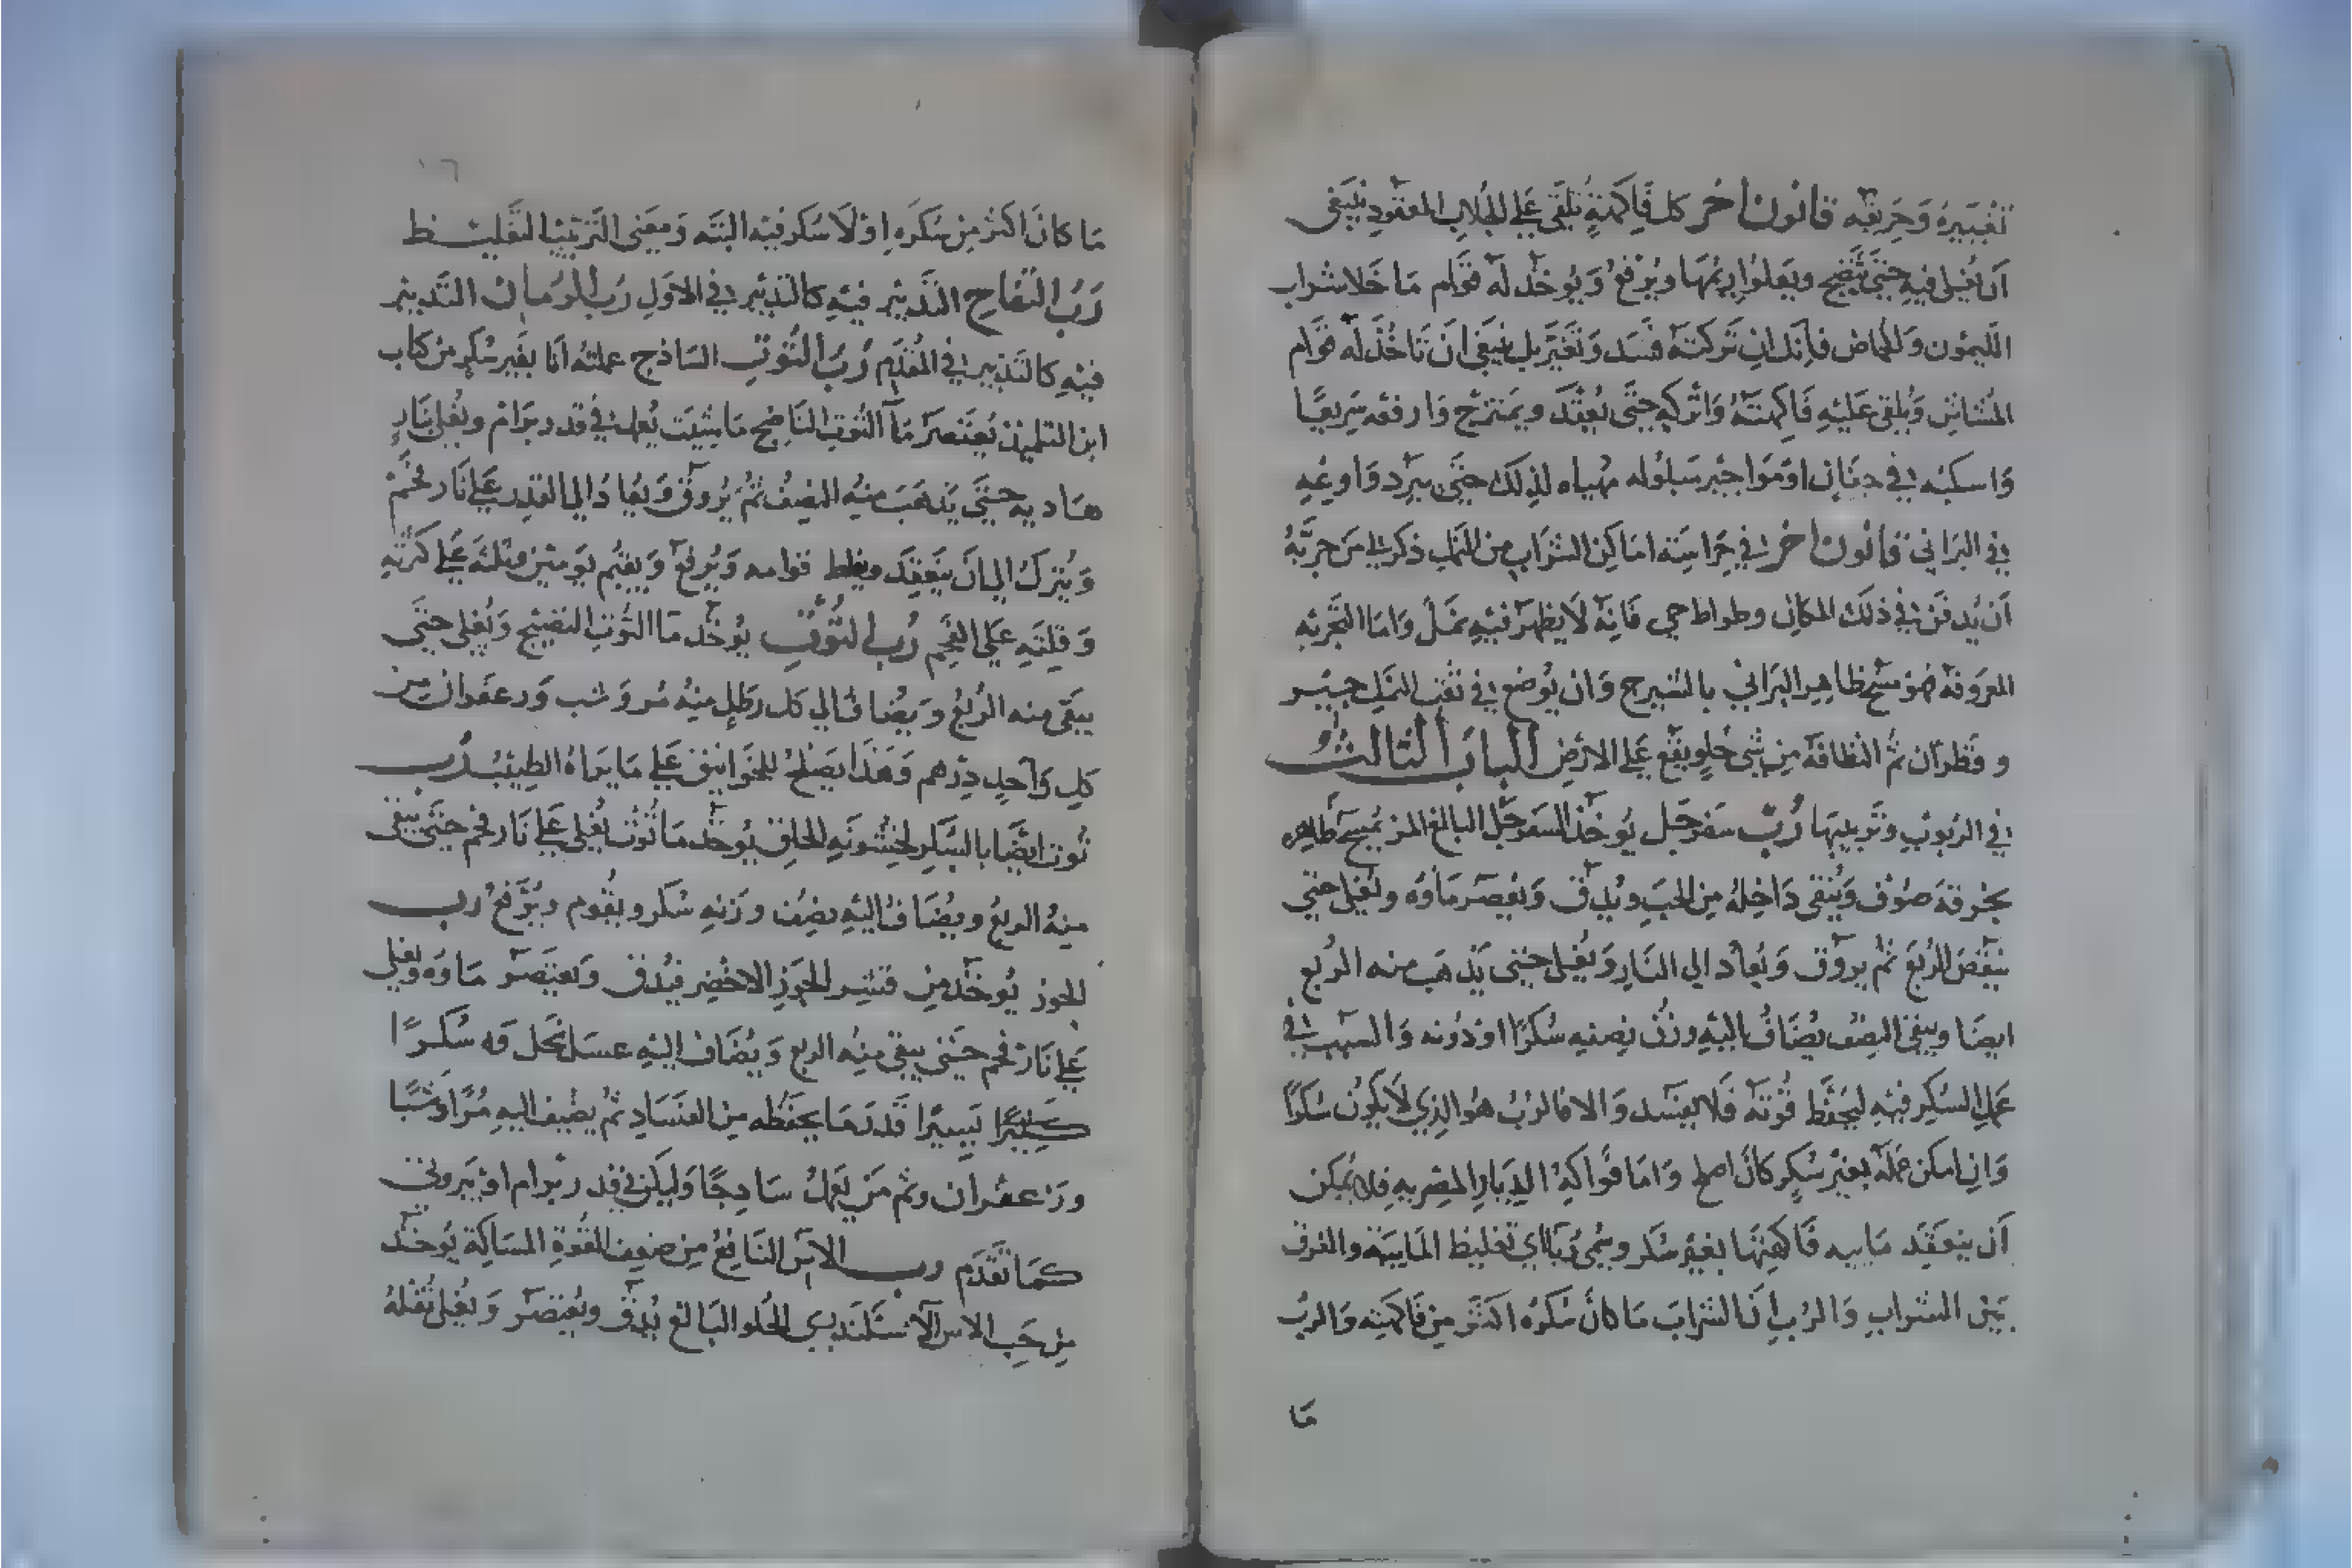 تغييره وحريقه قانون اخر كل فاكهة تلقى على الجلاب المعقود ينبغى
ان تغلى فيه حتى تنضج ويعلوا ريمها ويرفع ويوخذ له قوام ما خلا شراب
الليمون والحماض فانك ان تركته فسد وتغير بل ينبغى ان تاخذ له قوام
المشاش ويلقى عليه فاكهته واتركه حتى يعقد ويمتزج وارفعه سريعا
واسكبه في جفان او مواجير مبلوله مهياه لذلك حتى يبرد واوعيه
في البراني قانون اخر في حراسته اماكن الشراب من النمل ذكر لي من جربه
ان يدفن في ذلك المكان وطواط حي فانه لا يظهر فيه نمل واما التجربه
المعروفه فهو مسح ظاهر البراني بالشيرج وان يوضع في ثقب النمل جير
وقطران ثم النظافة من شي حلو يقع على الارض الباب الثالث
في الربوب وتربيبها رب سفرجل يوخذ السفرجل البالغ المز يمسح ظاهره
بخرقة صوف وينقى داخله من الحب ويدق ويعصر ماؤه وتغلى حتى
ينقص الربع ثم يروق ويعاد الي النار ويغلى حتى يذهب منه الربع
ايضا ويبقى النصف يضاف اليه وزن نصفه سكرا او دونه والسبب في
عمل السكر فيه ليحفظ قوته فلا يفسد والا فالرب هو الذي لا يكون سكرا
وان امكن عمله بغير سكر كان اصلح واما فواكه الديار المصريه فلا يمكن
ان ينعقد مابيه فاكهتها بغير سكر وسمي ربا اي تغليظ المايية والفرق
بين الشراب والرب ان الشراب ما كان سكره اكثر من فاكهته والرب
ما
ما كان اكثر من سكره او لا سكر فيه البته ومعنى التربيب التغليظ
رب التفاح التدبير فيه كالتدبير في الاول رب الرمان التدبير
فيه كالتدبير في المقدم رب التوت الساذج عملته انا بغير سكر من كتاب
ابن التلميذ يعتصر ما التوت الناضج ما شيت يعمل في قدر برام ويغلى بنار
هاديه حتى يذهب منه النصف ثم يروق ويعاد الي القدر على نار فحم
ويترك الي ان ينعقد ويغلظ قوامه ويرفع ويقيم يومين وثلثة على كثرته
وقلته على الفحم رب التوت يوخذ ما التوت النضيج ويغلى حتى
يبقى منه الربع ويضاف الي كل رطل منه مر وشب وزعفران من
كل واحد درهم وهذا يصلح للخوانيق على ما يراه الطبيب رب
توت ايضا بالسكر لخشونه الحلق يوخذ ما توت يغلى على نار فحم حتى يبقى
منه الربع ويضاف اليه نصف وزنه سكر ويقوم ويرفع رب
الجوز يوخذ من قشر الجوز الاخضر فيدق ويعتصر ماوه ويغلى
على نار فحم حتى يبقى منه الربع ويضاف اليه عسل نحل سكرا
يسيرا قدر ما يحفظه من الفساد ثم يضيف اليه مرا وشبا
وزعفران وثم من يعمله ساذجا وليكن في قدر برام او
كما تقدم رب الاس النافع من ضعف القوة الماسكة يوخذ
من حب الاس الحلو البالغ يدق ويعتصر ويغلى ثفله